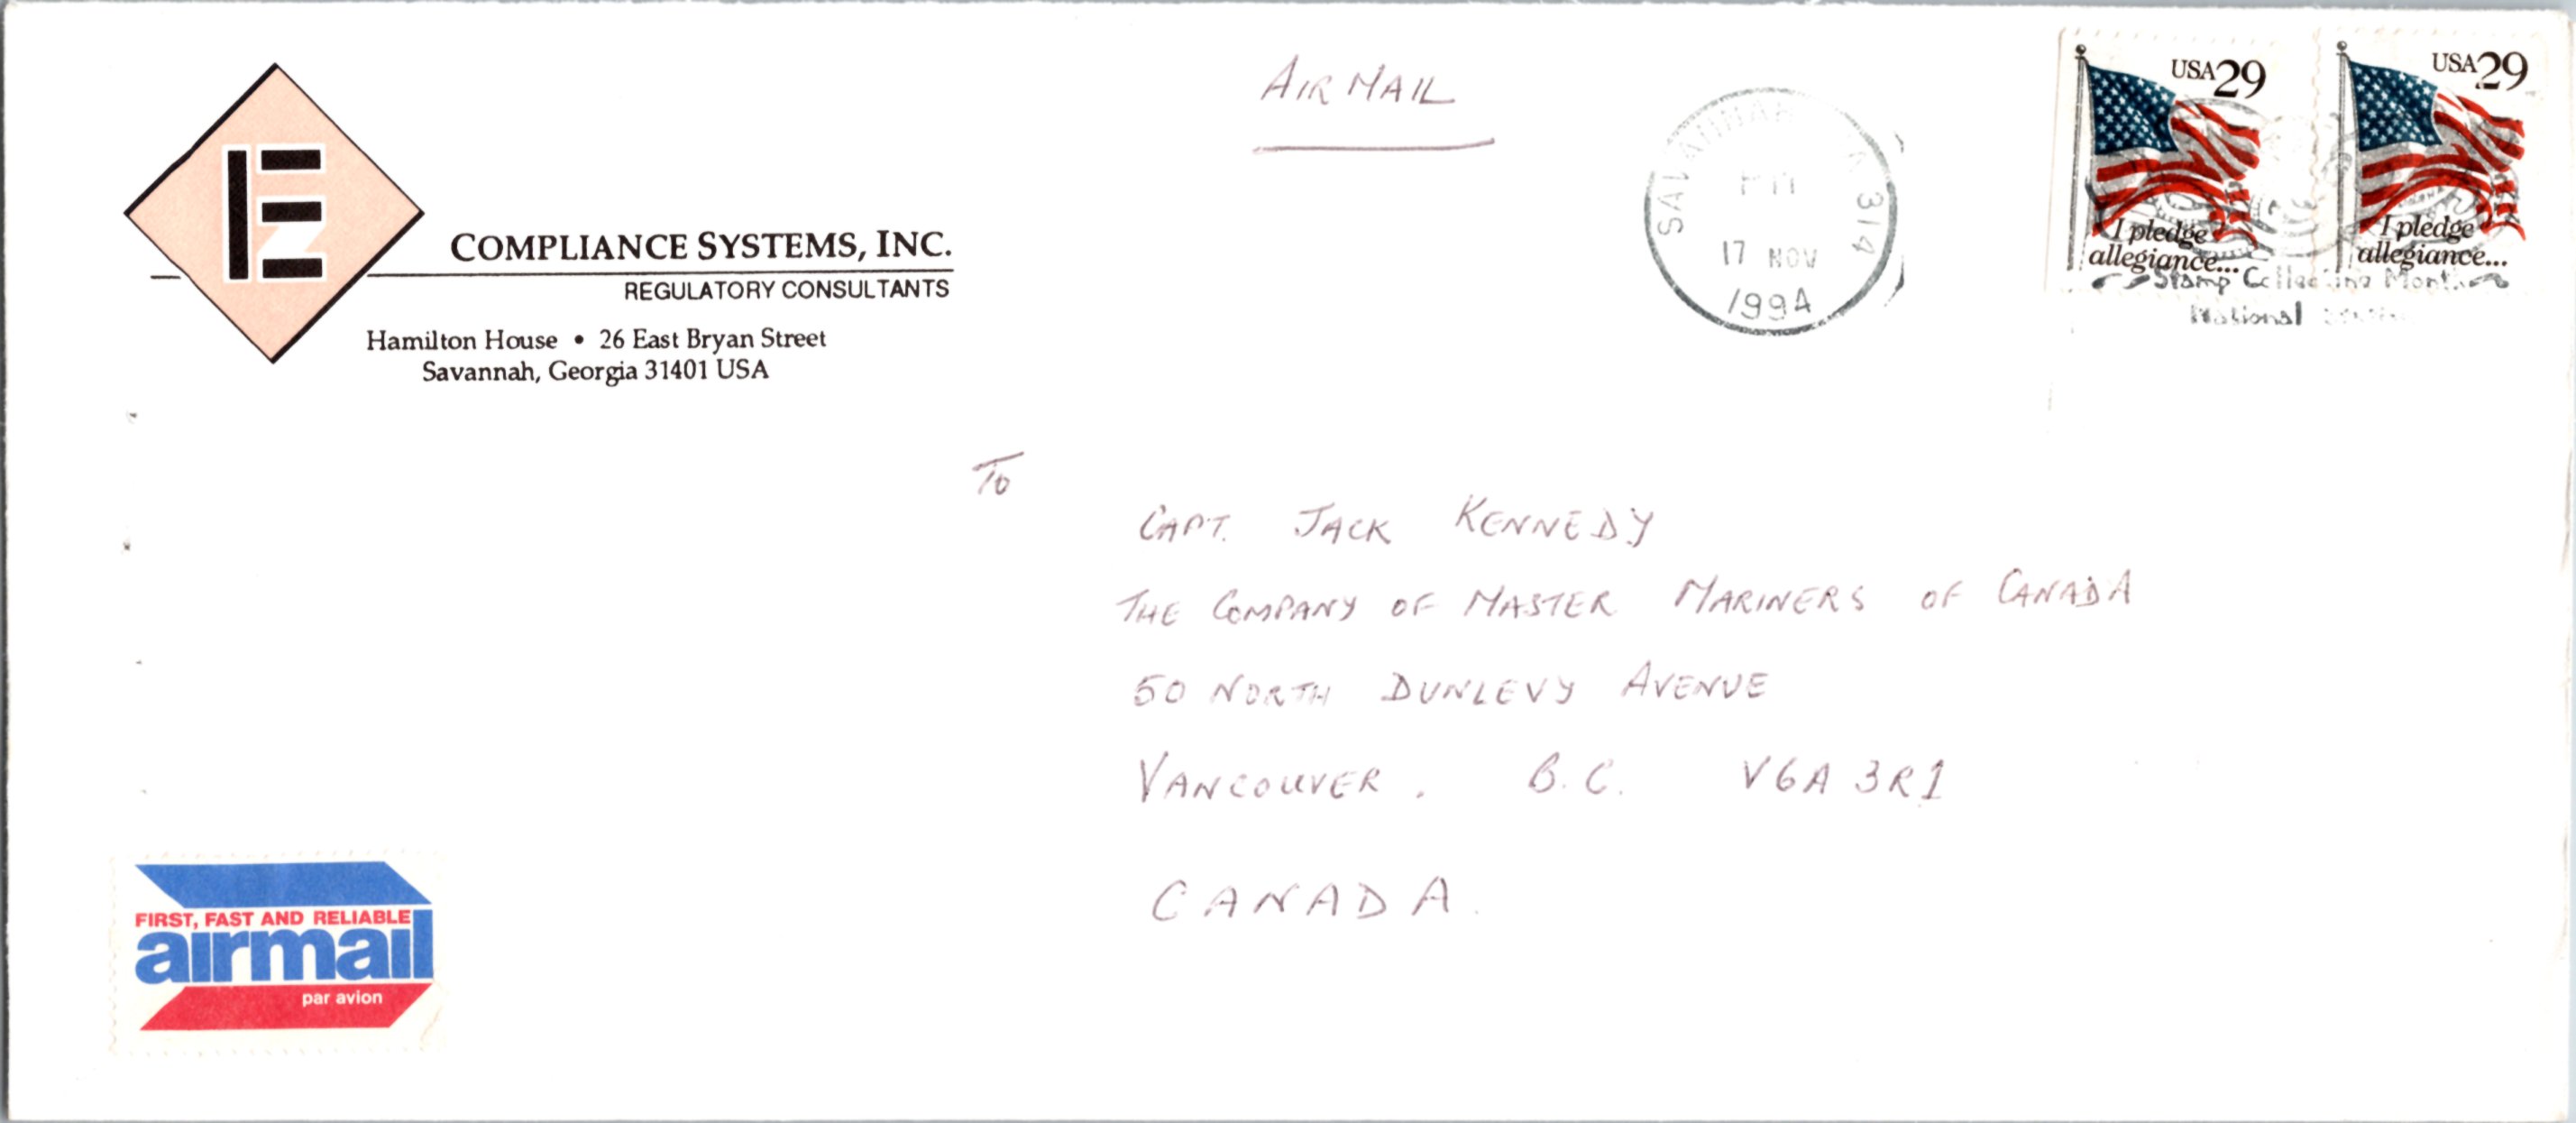 COMPLIANCE SYSTEMS, INC.
REGULATORY CONSULTANTS
Hamilton House • 26 East Bryan Street
Savannah, Georgia 31401 USA
AIR MAIL
SAVANNAH 314
PM
17 NOV
1994
USA 29
I pledge
allegiance...
USA 29
I pledge
allegiance...
Stamp Collecting Month
National
To
CAPT. JACK KENNEDY
THE COMPANY OF MASTER MARINERS OF CANADA
50 NORTH DUNLEVY AVENUE
VANCOUVER. B.C. V6A 3R1
CANADA.
FIRST, FAST AND RELIABLE
airmail
par avion